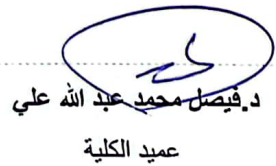 د.فيصل محمد عبد الله علي
عميد الكلية